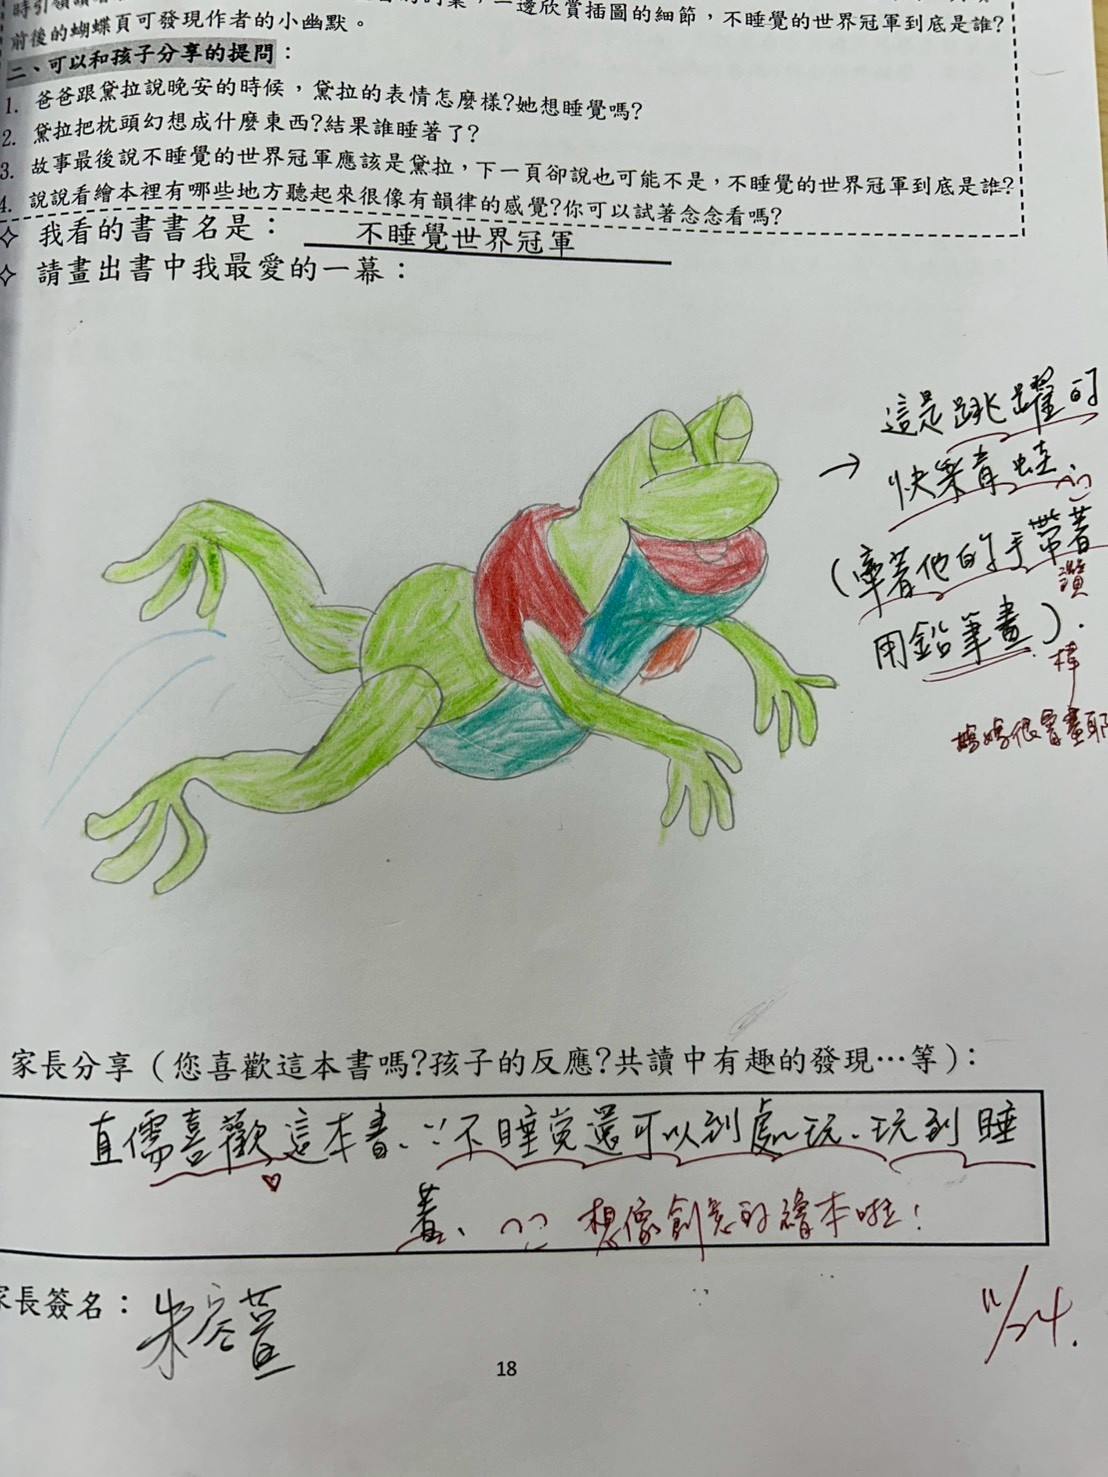 一邊欣賞插圖的細節，不睡覺的世界冠軍到底是誰?
前後的蝴蝶頁可發現作者的小幽默。
二、可以和孩子分享的提問：
1. 爸爸跟黛拉說晚安的時候，黛拉的表情怎麼樣?她想睡覺嗎?
2. 黛拉把枕頭幻想成什麼東西?結果誰睡著了?
3. 故事最後說不睡覺的世界冠軍應該是黛拉，下一頁卻說也可能不是，不睡覺的世界冠軍到底是誰?
4. 說說看繪本裡有哪些地方聽起來很像有韻律的感覺?你可以試著念念看嗎?
✧ 我看的書書名是： 不睡覺世界冠軍
✧ 請畫出書中我最愛的一幕：
這是跳躍的
→ 快樂青蛙.
(牽著他的手帶著
讚
用鉛筆畫).
棒
媽媽很會畫耶
家長分享（您喜歡這本書嗎?孩子的反應?共讀中有趣的發現…等）：
直儒喜歡這本書.∵不睡覺還可以到處玩.玩到睡
著、 想像創意的繪本啦!
家長簽名：朱容萱
11/24.
18